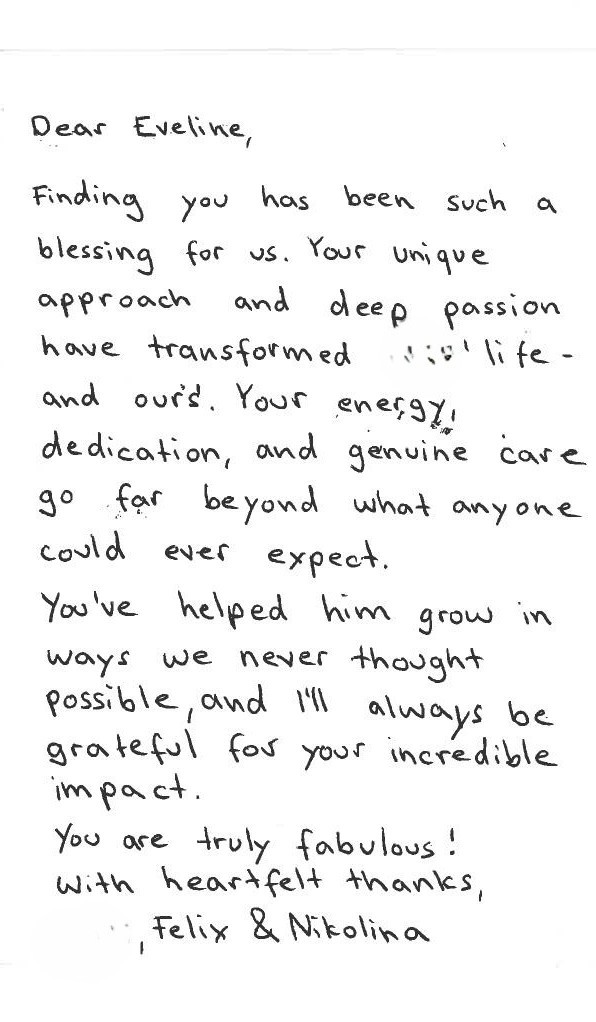 Dear Eveline,
Finding you has been such a
blessing for us. Your unique
approach and deep passion
have transformed life -
and our's. Your energy,
dedication, and genuine care
go far beyond what anyone
could ever expect.
You've helped him grow in
ways we never thought
possible, and I'll always be
grateful for your incredible
impact.
You are truly fabulous!
With heartfelt thanks,
, Felix & Nikolina